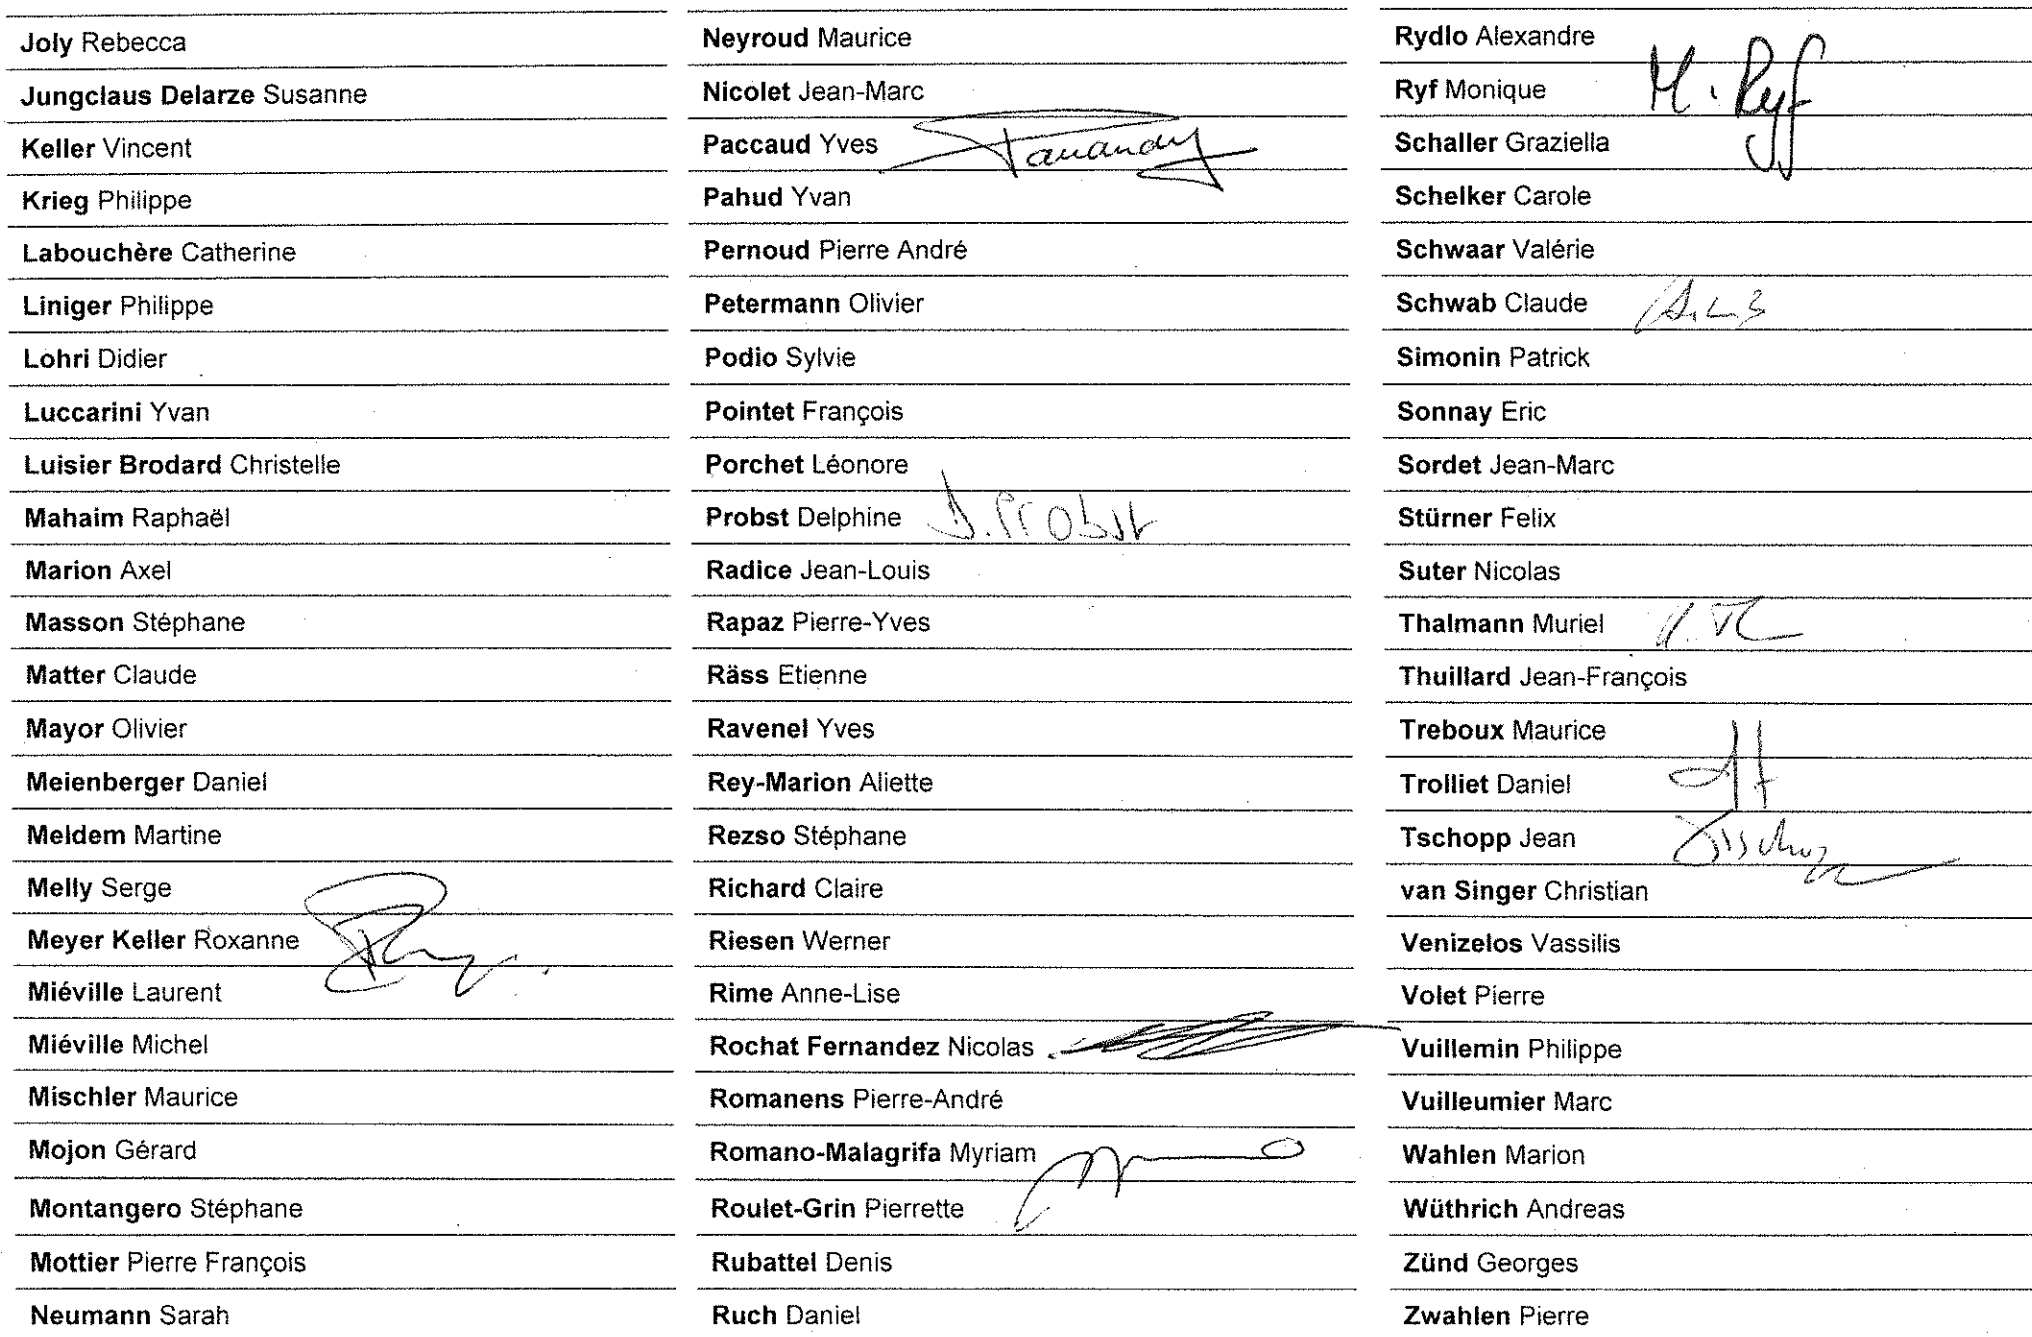 Joly Rebecca
Jungclaus Delarze Susanne
Keller Vincent
Krieg Philippe
Labouchère Catherine
Liniger Philippe
Lohri Didier
Luccarini Yvan
Luisier Brodard Christelle
Mahaim Raphaël
Marion Axel
Masson Stéphane
Matter Claude
Mayor Olivier
Meienberger Daniel
Meldem Martine
Melly Serge
Meyer Keller Roxanne
Miéville Laurent
Miéville Michel
Mischler Maurice
Mojon Gérard
Montangero Stéphane
Mottier Pierre François
Neumann Sarah
Neyroud Maurice
Nicolet Jean-Marc
Paccaud Yves
Pahud Yvan
Pernoud Pierre André
Petermann Olivier
Podio Sylvie
Pointet François
Porchet Léonore
Probst Delphine D. Probst
Radice Jean-Louis
Rapaz Pierre-Yves
Räss Etienne
Ravenel Yves
Rey-Marion Aliette
Rezso Stéphane
Richard Claire
Riesen Werner
Rime Anne-Lise
Rochat Fernandez Nicolas
Romanens Pierre-André
Romano-Malagrifa Myriam
Roulet-Grin Pierrette
Rubattel Denis
Ruch Daniel
Rydlo Alexandre
Ryf Monique M. Ryf
Schaller Graziella
Schelker Carole
Schwaar Valérie
Schwab Claude
Simonin Patrick
Sonnay Eric
Sordet Jean-Marc
Stürner Felix
Suter Nicolas
Thalmann Muriel
Thuillard Jean-François
Treboux Maurice
Trolliet Daniel
Tschopp Jean
van Singer Christian
Venizelos Vassilis
Volet Pierre
Vuillemin Philippe
Vuilleumier Marc
Wahlen Marion
Wüthrich Andreas
Zünd Georges
Zwahlen Pierre